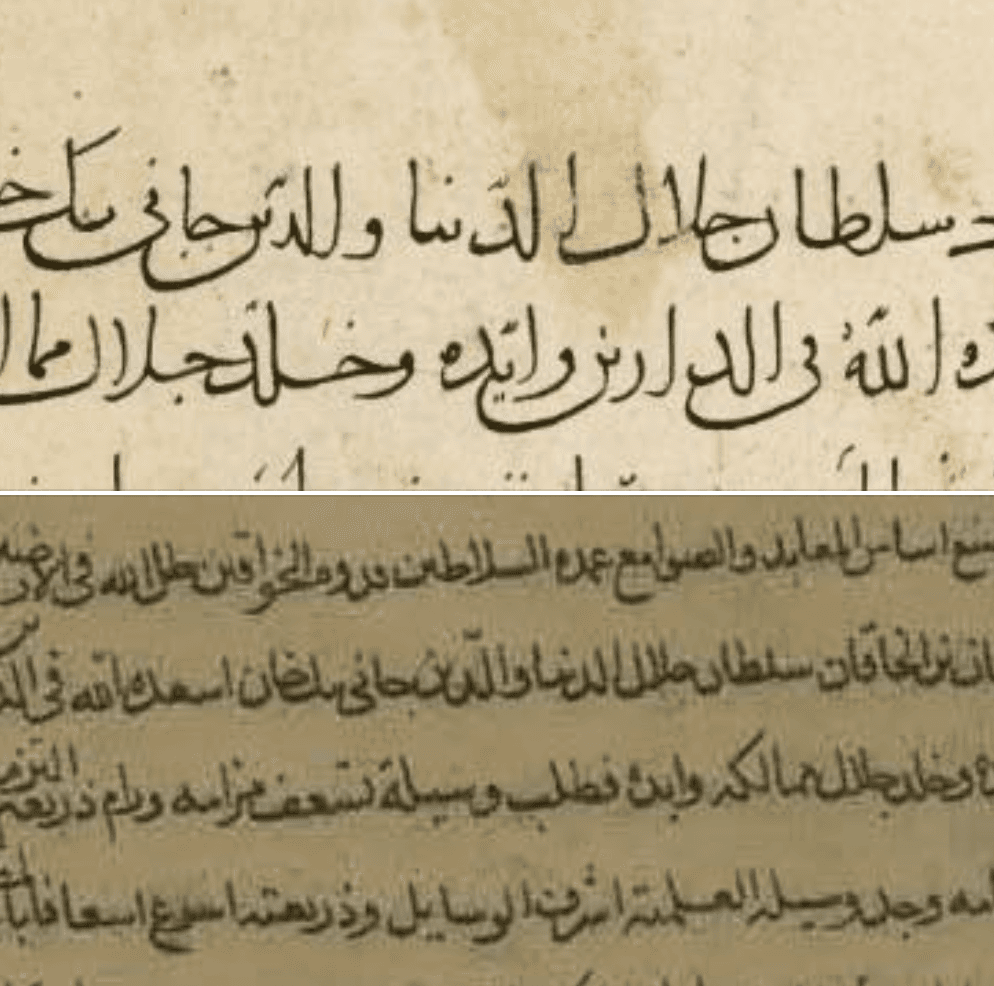 سلطان جلال الدنيا والدين جانى بك
الله فى الدارين وايده وخلد جلال مما
اساس المعابد والصوامع عمدة السلاطين قدوة الخواقين ظل الله فى الارضين
بن الخاقان سلطان جلال الدنيا والدين جانى بك خان اسعده الله فى
وخلد جلال ممالكه وابده فطلب وسيلة تسعف مرامه ورام ذريعة
وجد وسيلة العلمية اشرف الوسايل وذريعتها اسرع اسعافا